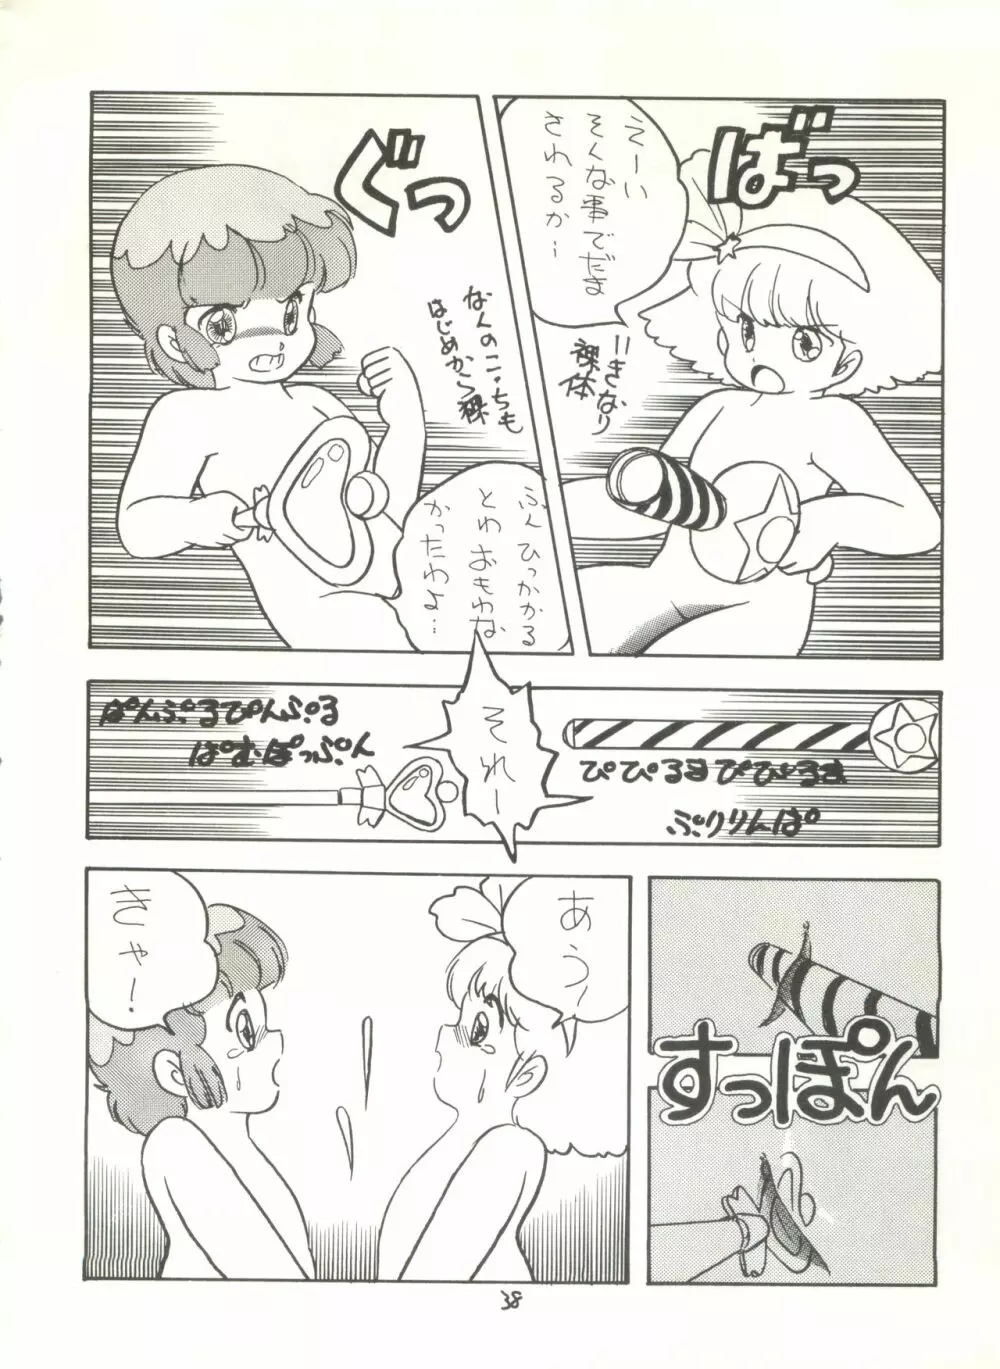 ばっ
えーい
そんな事でだま
されるか…
いきなり
裸体
ぐっ
なんのこっちも
はじめから裸
ふん ひっかかる
とわ おもわな
かったわよ…
それー
ぴぴるまぴぴるま
ぷりりんぱ
ぱんぷるぴんぷる
ぱむぽっぷん
すっぽん
あう!
きゃー!
38